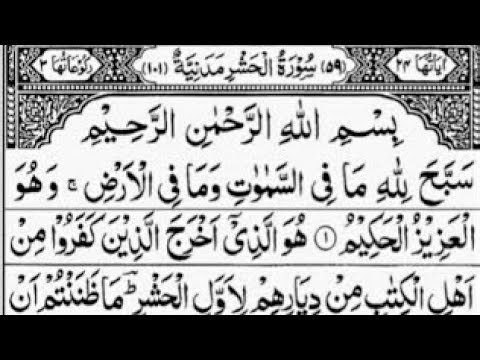 اٰيَاتُهَا ٢٤ (٥٩) سُوْرَةُ الْحَشْرِ مَدَنِيَّةٌ (١٠١) رُكُوْعَاتُهَا ٣
بِسْمِ اللّٰهِ الرَّحْمٰنِ الرَّحِيْمِ
سَبَّحَ لِلّٰهِ مَا فِى السَّمٰوٰتِ وَمَا فِى الْاَرْضِ ۚ وَهُوَ
الْعَزِيْزُ الْحَكِيْمُ ۝١ هُوَ الَّذِىْٓ اَخْرَجَ الَّذِيْنَ كَفَرُوْا مِنْ
اَهْلِ الْكِتٰبِ مِنْ دِيَارِهِمْ لِاَوَّلِ الْحَشْرِ ؕ مَا ظَنَنْتُمْ اَنْ